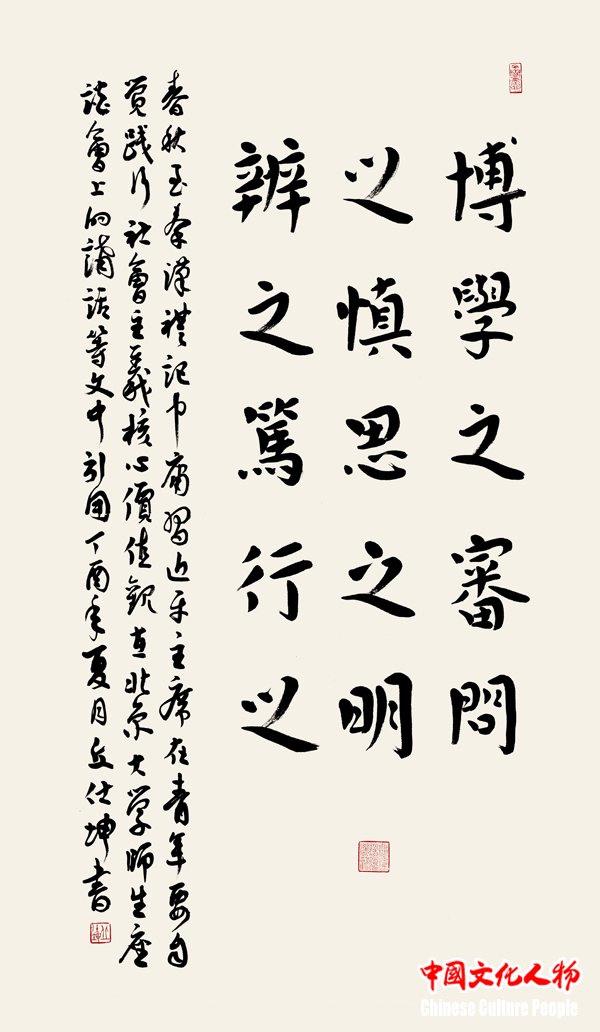 博學之審問
之慎思之明
辨之篤行之
春秋至秦漢禮記中庸習近平主席在青年要自
覺踐行社會主義核心價值觀在北京大学師生座
談會上的講話等文中引用丁酉年夏月丘仕坤書
中國文化人物
Chinese Culture People